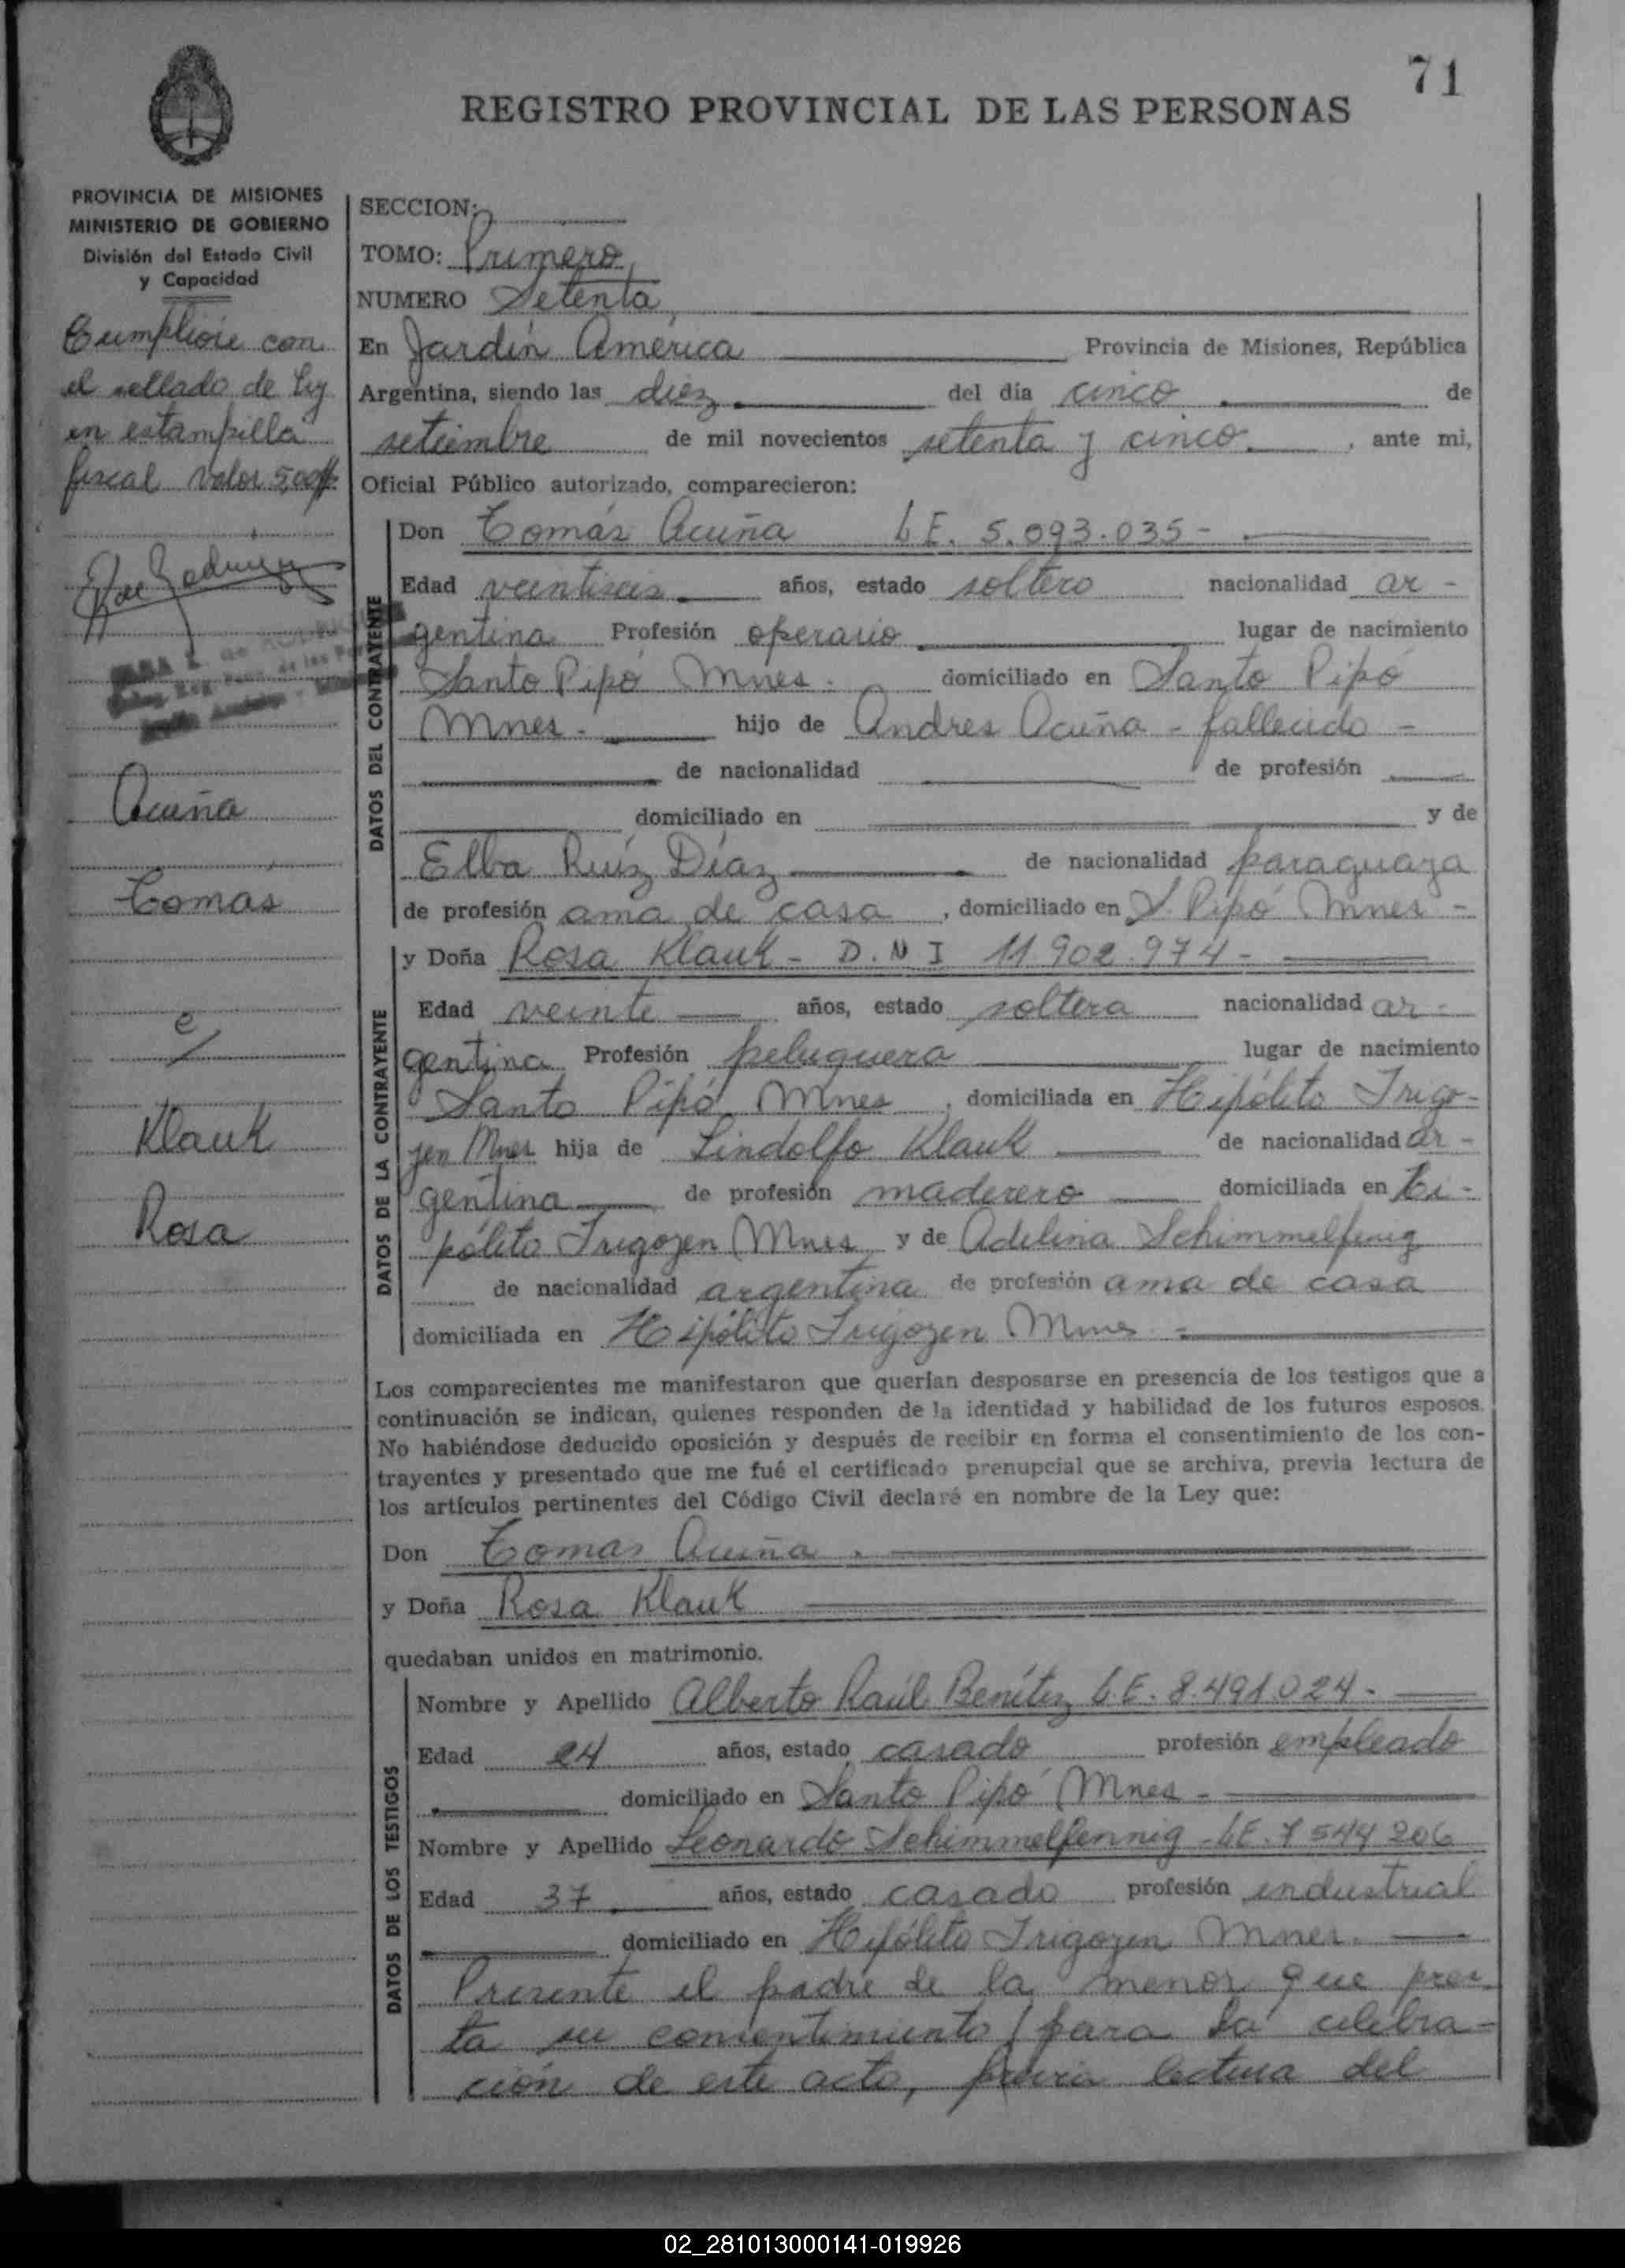 71
REGISTRO PROVINCIAL DE LAS PERSONAS
PROVINCIA DE MISIONES
MINISTERIO DE GOBIERNO
División del Estado Civil
y Capacidad
Cumplióse con
el sellado de ley
en estampilla
fiscal valor 5,00
Acuña
Tomás
e/
Klauk
Rosa
SECCION:
TOMO: Primero
NUMERO Setenta
En Jardín América Provincia de Misiones, República
Argentina, siendo las diez del día cinco de
setiembre de mil novecientos setenta y cinco , ante mi,
Oficial Público autorizado, comparecieron:
DATOS DEL CONTRAYENTE
Don Tomás Acuña L.E. 5.093.035-
Edad veintiseis años, estado soltero nacionalidad ar-
gentina Profesión operario lugar de nacimiento
Santo Pipó Mnes. domiciliado en Santo Pipó
Mnes. hijo de Andres Acuña - fallecido -
de nacionalidad de profesión
domiciliado en y de
Elba Ruíz Díaz de nacionalidad paraguaya
de profesión ama de casa , domiciliado en S. Pipó Mnes -
DATOS DE LA CONTRAYENTE
y Doña Rosa Klauk - D.N.I 11.902.974-
Edad veinte años, estado soltera nacionalidad ar-
gentina Profesión peluquera lugar de nacimiento
Santo Pipó Mnes , domiciliada en Hipólito Irigo-
yen Mnes hija de Lindolfo Klauk de nacionalidad ar-
gentina de profesión maderero domiciliada en Hi-
pólito Irigoyen Mnes y de Adelina Schimmelfenig
de nacionalidad argentina de profesión ama de casa
domiciliada en Hipólito Irigoyen Mnes -
Los comparecientes me manifestaron que querían desposarse en presencia de los testigos que a
continuación se indican, quienes responden de la identidad y habilidad de los futuros esposos.
No habiéndose deducido oposición y después de recibir en forma el consentimiento de los con-
trayentes y presentado que me fué el certificado prenupcial que se archiva, previa lectura de
los artículos pertinentes del Código Civil declaré en nombre de la Ley que:
Don Tomas Acuña.
y Doña Rosa Klauk
quedaban unidos en matrimonio.
DATOS DE LOS TESTIGOS
Nombre y Apellido Alberto Raúl Benítez L.E. 8.491.024-
Edad 24 años, estado casado profesión empleado
domiciliado en Santo Pipó Mnes -
Nombre y Apellido Leonardo Schimmelfennig - L.E. 7544206
Edad 37 años, estado casado profesión industrial
domiciliado en Hipólito Irigoyen Mnes.
Presente el padre de la menor que pres-
ta su consentimiento para la celebra-
ción de este acto, previa lectura del
02_281013000141-019926